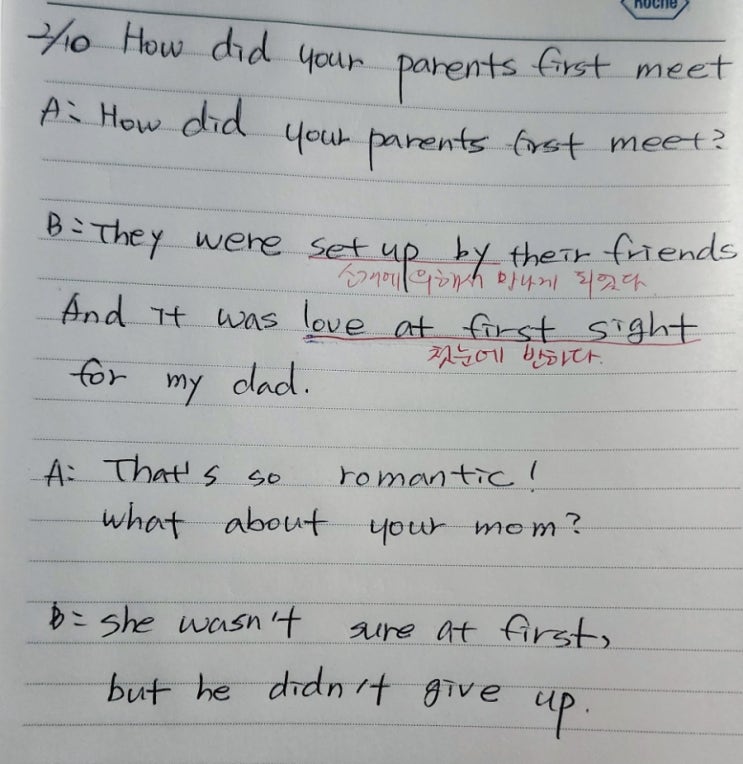 Roche
2/10 How did your parents first meet
A: How did your parents first meet?
B: They were set up by their friends
소개에 의해서 만나게 되었다
And it was love at first sight
첫눈에 반하다.
for my dad.
A: That's so romantic!
what about your mom?
B: she wasn't sure at first,
but he didn't give up.